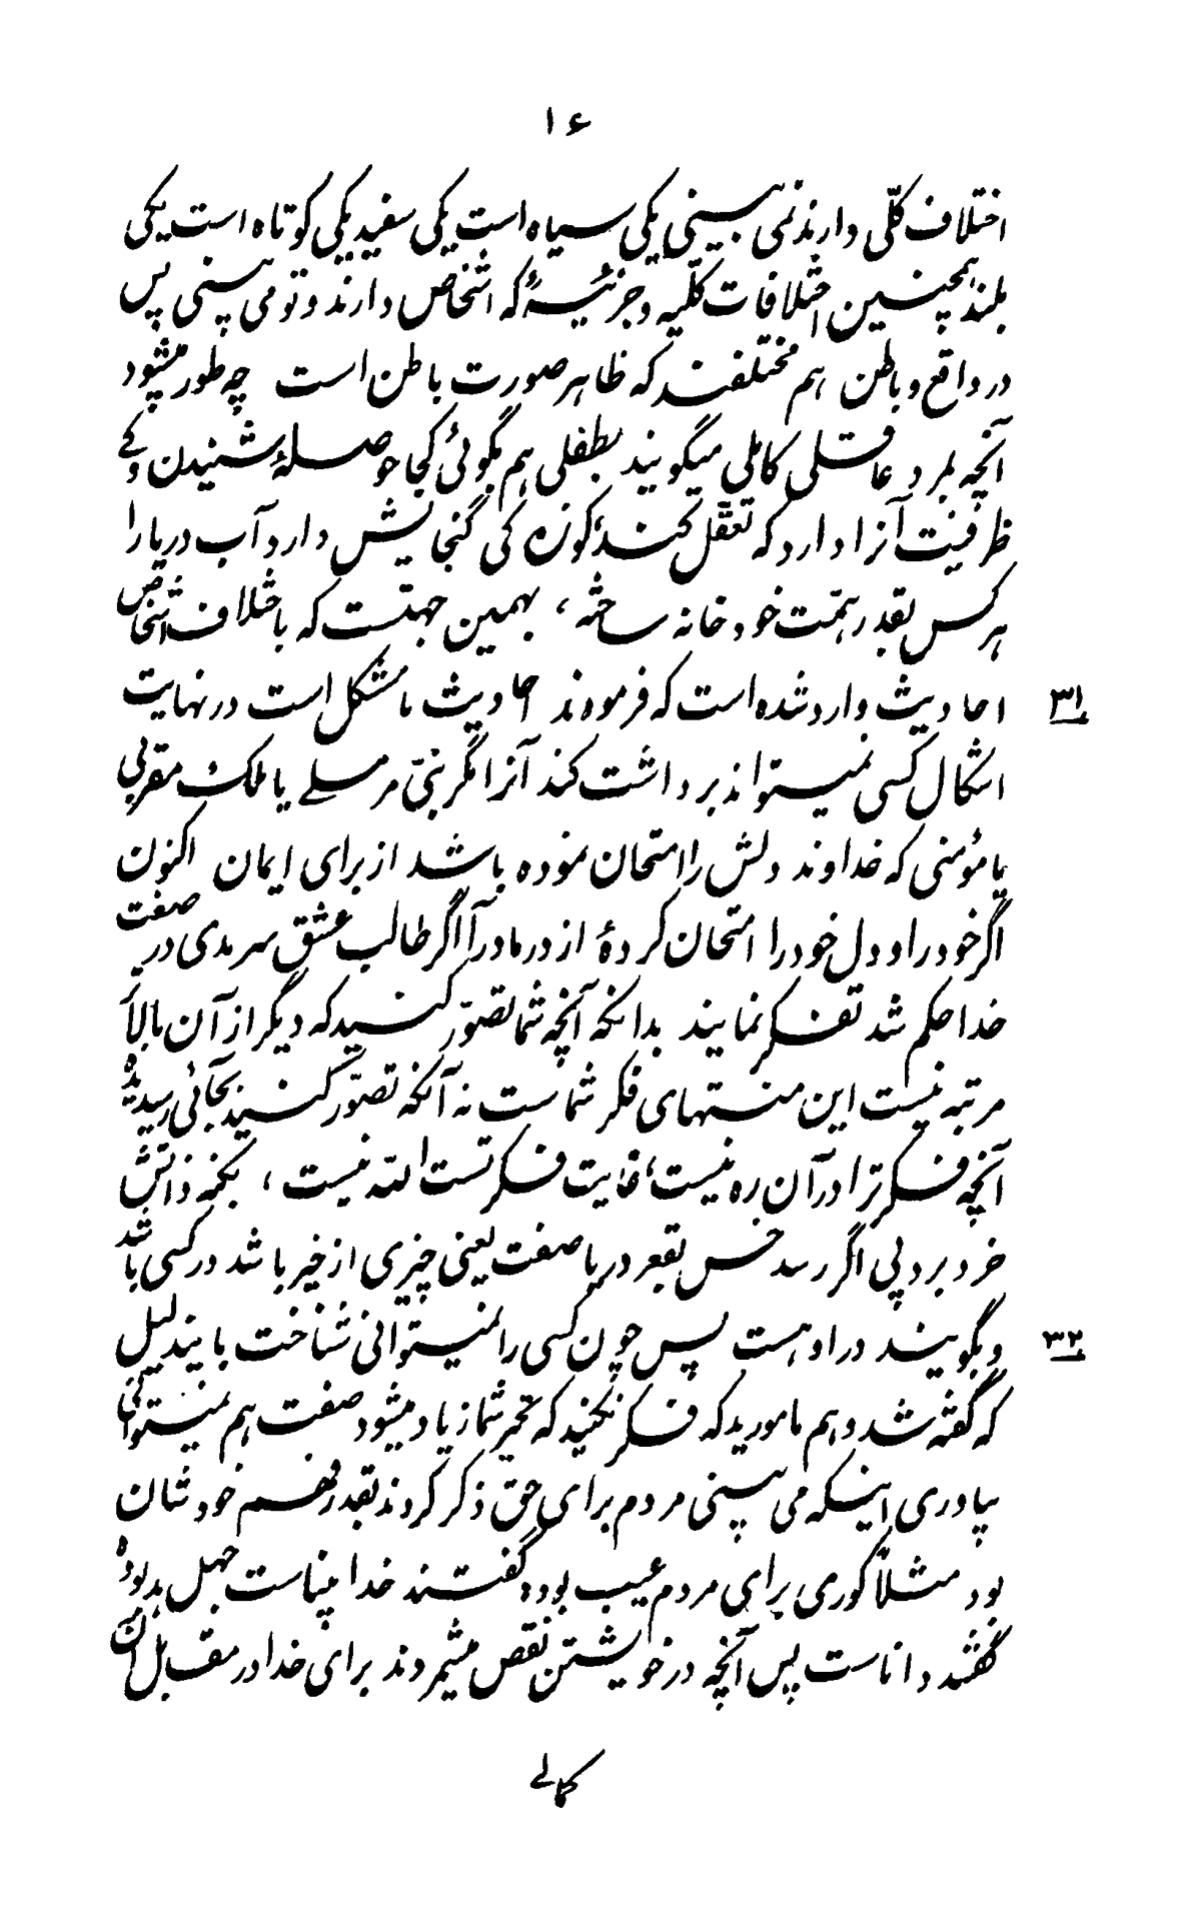 ۱۶
اختلاف کلّی دارند نمی بینی یکی سیاه است یکی سفید یکی کوتاه است یکی
بلند همچنین اختلافات کلّیه و جزئیهٔ که اشخاص دارند و تو می بینی پس
در واقع و باطن هم مختلفند که ظاهر صورت باطن است چه طور میشود
آنچه بمرد عاقلی کاملی میگویند بطفلی هم بگوئی کجا حوصلهٔ شنیدن و کے
ظرفیت آنرا دارد که تعقّل کند، کوزه کی گنجایش دارد آب دریا را
هر کس بقدر همّت خود خانه ساخته، بهمین جهتست که باختلاف اشخاص
۳۱ احادیث وارد شده است که فرموند احادیث ما مشکل است در نهایت
اشکال کسی نمیتواند برداشت کند آنرا مگر نبّی مرسلے یا ملک مقربی
یا مؤمنی که خداوند دلش را امتحان نموده باشد از برای ایمان اکنون
اگر خود را و دل خود را امتحان کردهٔ از در ما درآ اگر طالب عشق سرمدی در صفت
خدا حکم شد تفکر نمایند بدانکه آنچه شما تصوّر کنید که دیگر از آن بالا
مرتبه نیست این منتهای فکر شماست نه آنکه تصوّر کنید بجائی رسیدید
آنچه فکر ترا در آن ره نیست، غایت فکر تست الله نیست، بکنه ذاتش
خرد برد پی اگر رسد خس بقعر دریا صفت یعنی چیزی از خیر باشد در کسی باشد
۳۲ و بگویند در او هست پس چون کسی را نمیتوانی شناخت بایندلیل
که گفته شد و هم مامورید که فکر نکنید که تحیر شما زیاد میشود صفت هم نمیتوانی
بیاوری اینکه می بینی مردم برای حق ذکر کردند بقدر فهم خودشان
بود مثلاً کوری برای مردم عیب بوده گفتند خدا بیناست جهل بد بوده
گفتند داناست پس آنچه در خویشتن نقص میشمردند برای خدا در مقابل آن
کمالے